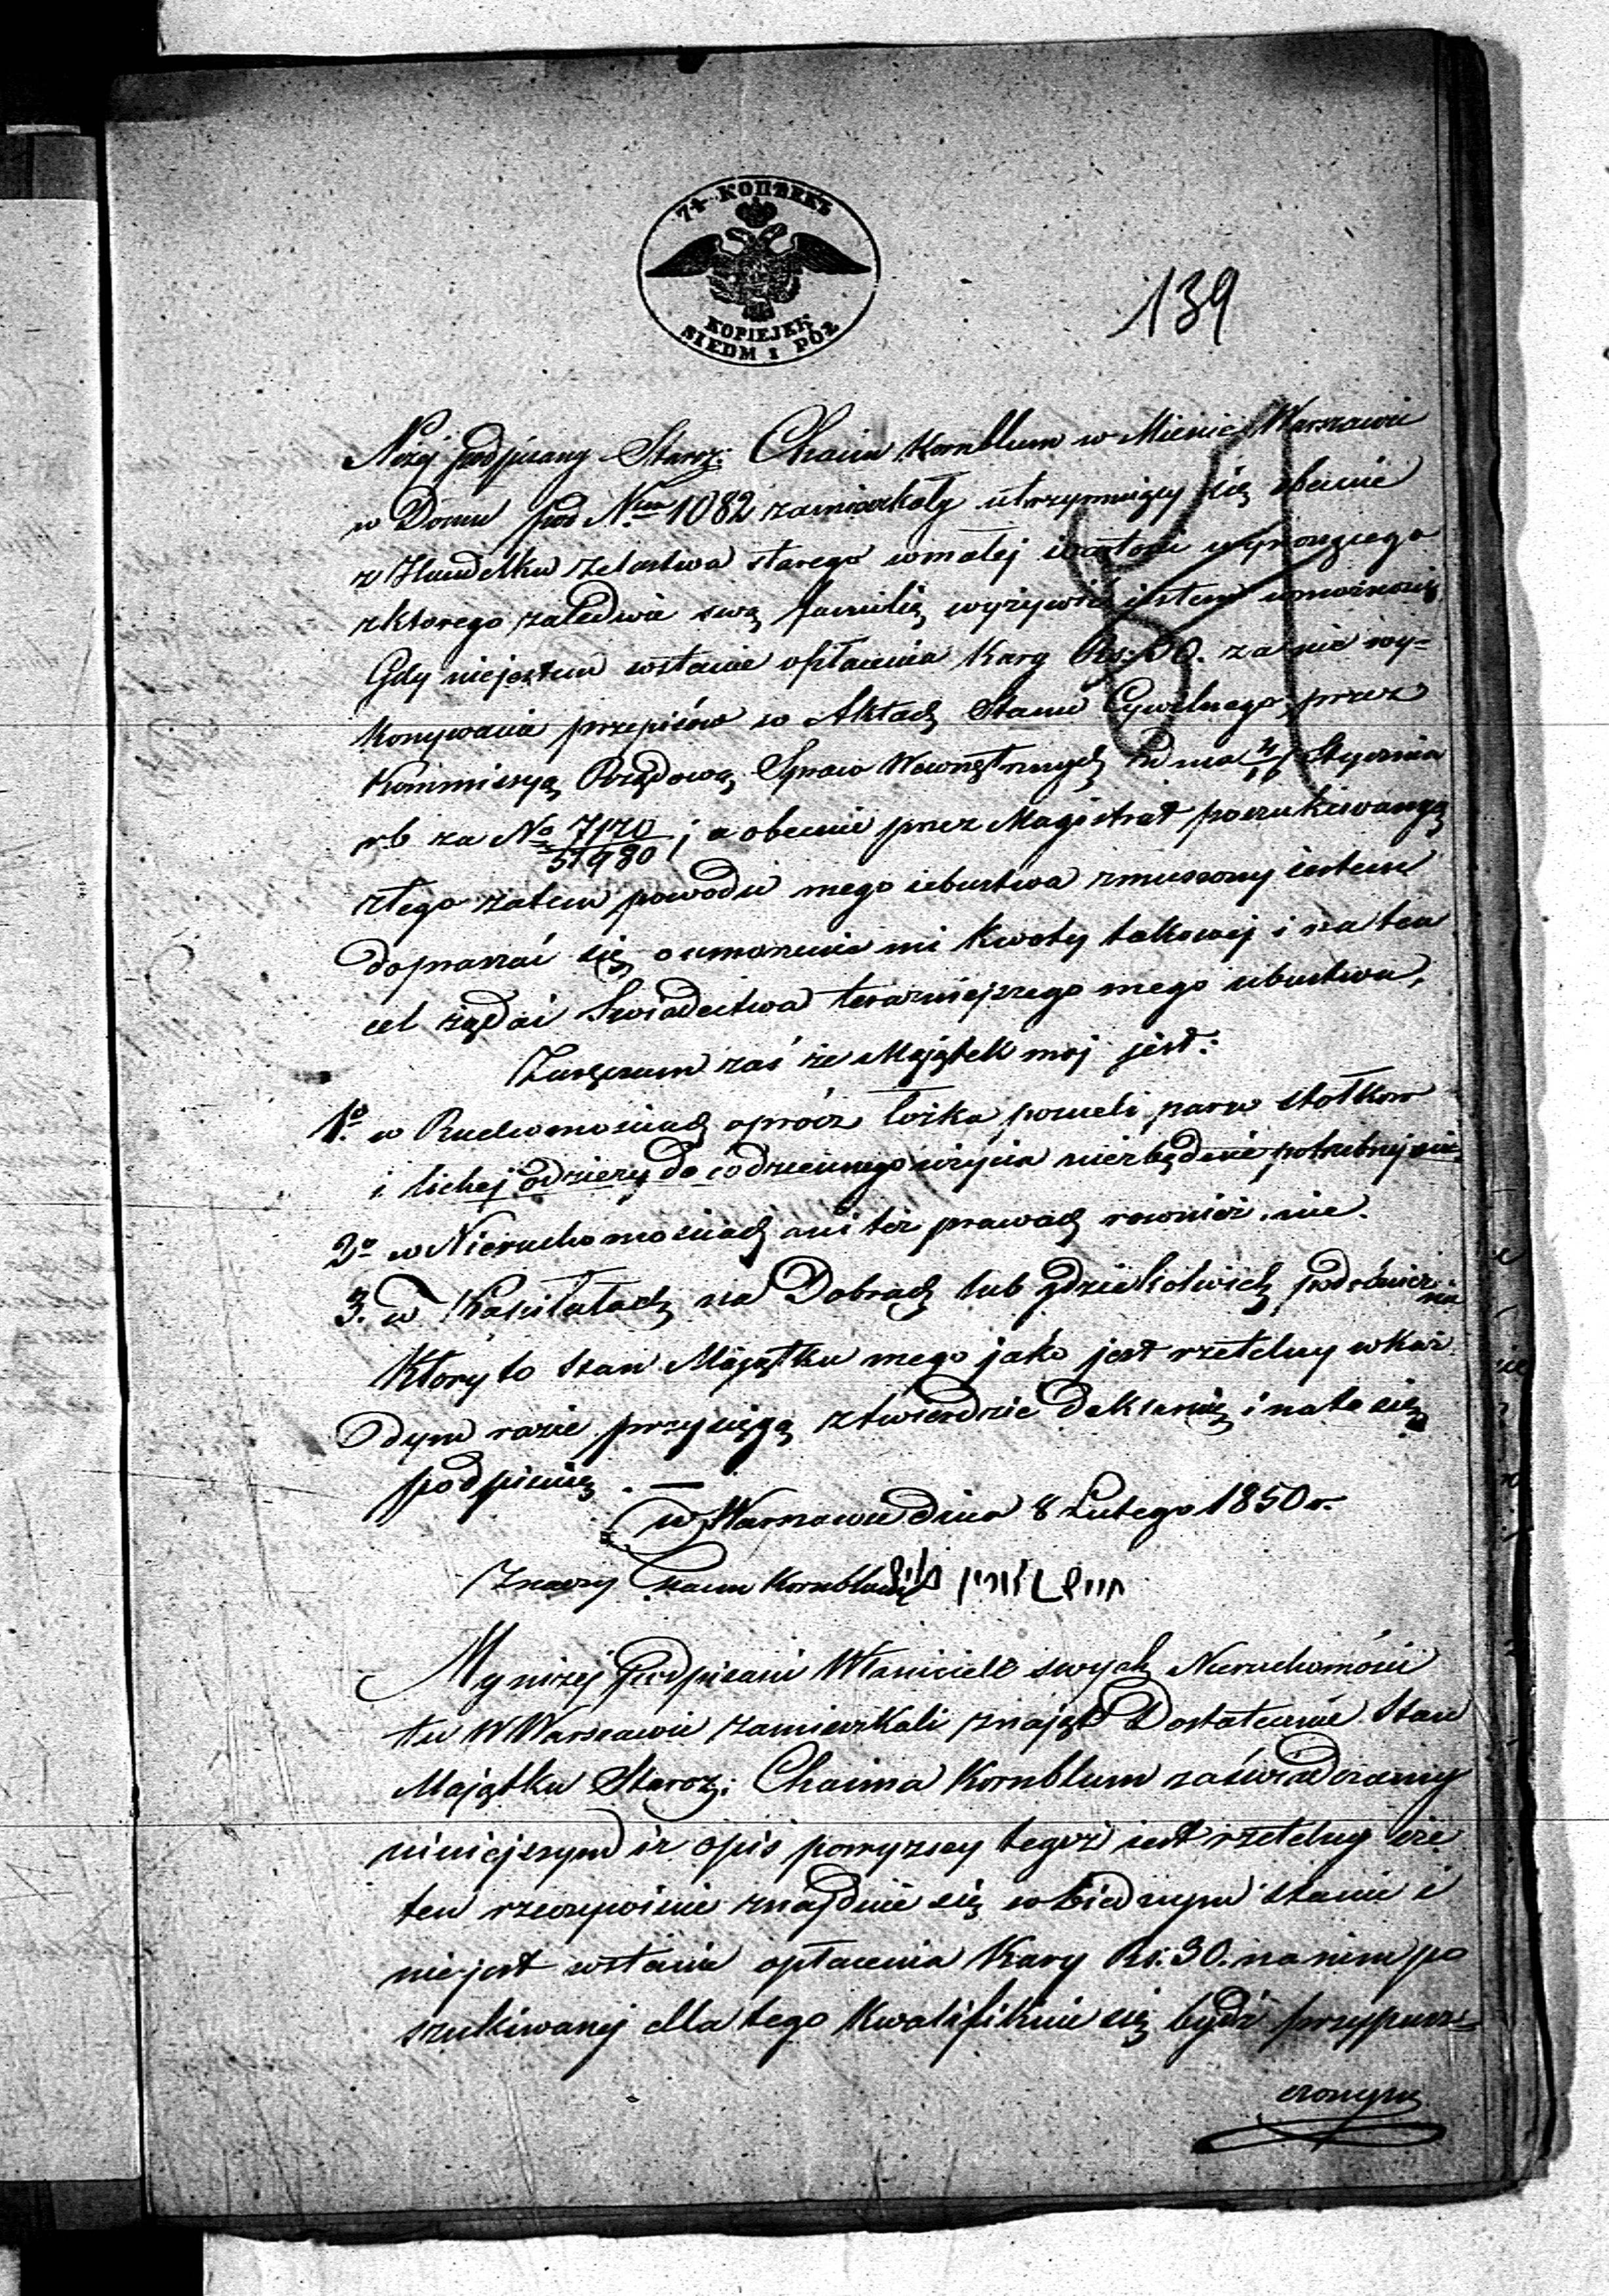 7½ КОПѢЕКЪ
KOPIEJEK
SIEDM I PÓŁ
139
Niżej podpisany Staroz: Chaim Kornblum w Mieście Warszawie
w Domu pod Nrem 1082 zamieszkały utrzymujący się obecnie
z Handelku żelastwa starego w małej wartości
z ktorego zaledwie swą familią wyżywić jestem w możności
Gdy niejestem wstanie opłacenia Kary Rs: 30. za nie wy-
konywanie przepisów w Aktach Stanu Cywilnego przez
Kommissyą Rządową Spraw Wewnętrznych Stycznia
rb za No 7170/51980; a obecnie przez Magistrat poszukiwaną
z tego zatem powodu mego ubustwa zmuszony jestem
dopraszać się o umorzenie mi kwoty takowej i na ten
cel żądać Swiadectwa teraźniejszego mego ubustwa,
Zaręczam zaś że Majątek moj jest:
1o w Ruchomościach oprócz łóżka pościeli paru stołkow
i lichej odzieży do codziennego użycia niezbędnie potrzebnej nic.
2o w Nieruchomościach ani też prawach rownież nic.
3. w Kapitałach na Dobrach lub gdziekolwiek podobnież nic
Ktory to stan Majątku mego jako jest rzetelny w kaz
dym razie przysięgą stwierdzic deklaruię i na to się
podpisuię. —
w Warszawie dnia 8 Lutego 1850 r.
Chaim Kornblum
My niżej podpisani Właściciele swych Nieruchomości
tu w Warszawie zamieszkali znając Dostatecznie Stan
Majątku Staroz: Chaima Kornblum zaświadczamy
niniejszym iż opis powyższy tegoż jest rzetelny i że
ten rzeczywiście znajduie się w biednym stanie i
nie jest wstanie opłacenia Kary Rs: 30. na nim po
szukiwanej dla tego kwalifikuie się bydź przypusz-
czonym